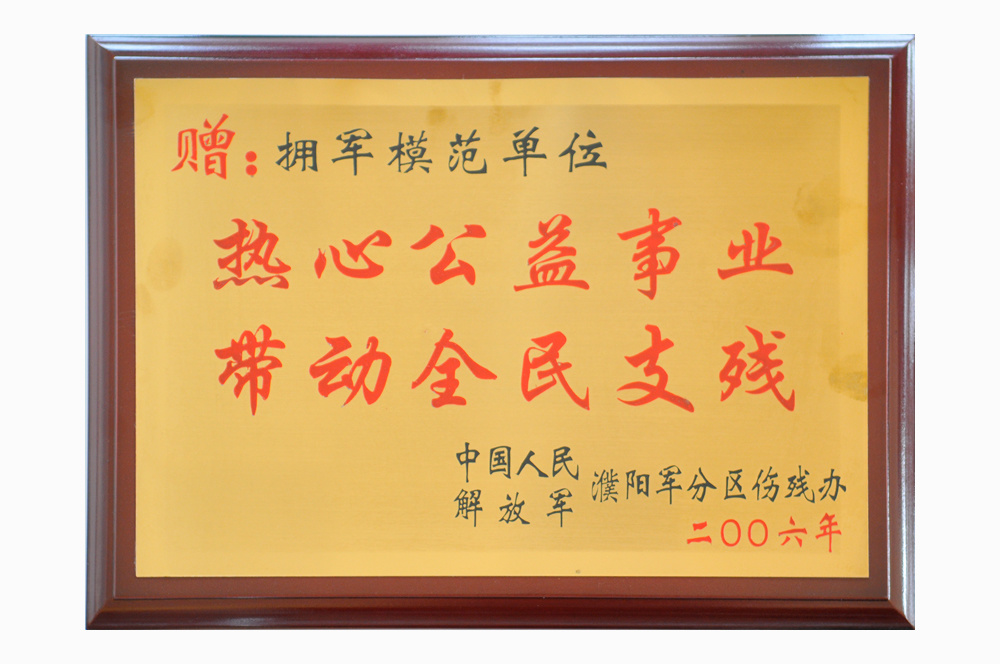 赠：拥军模范单位
热心公益事业
带动全民支残
中国人民
解放军
濮阳军分区伤残办
二〇〇六年